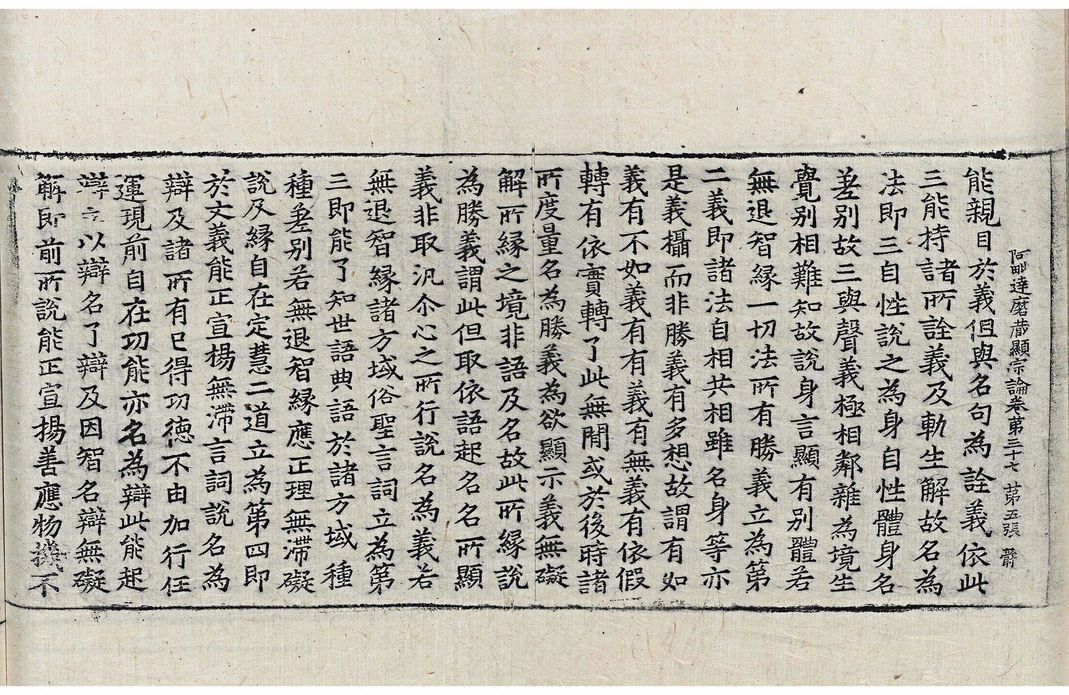 能親目於義但與名句為詮義依此
阿毗達磨藏顯宗論卷第三十七 第五張 爵
三能持諸所詮義及軌生解故名為
法即三自性說之為身自性體身名
差別故三與聲義極相鄰雜為境生
覺別相難知故說身言顯有別體若
無退智緣一切法所有勝義立為第
二義即諸法自相共相雖名身等亦
是義攝而非勝義有多想故謂有如
義有不如義有有義有無義有依假
轉有依實轉了此無間或於後時諸
所度量名為勝義為欲顯示義無礙
解所緣之境非語及名故此所緣說
為勝義謂此但取依語起名名所顯
義非取汎尒心之所行說名為義若
無退智緣諸方域俗聖言詞立為第
三即能了知世語典語於諸方域種
種差別若無退智緣應正理無滯礙
說及緣自在定慧二道立為第四即
於文義能正宣揚無滯言詞說名為
辯及諸所有已得功德不由加行任
運現前自在功能亦名為辯此能起
辯立以辯名了辯及因智名辯無礙
解即前所說能正宣揚善應物機不